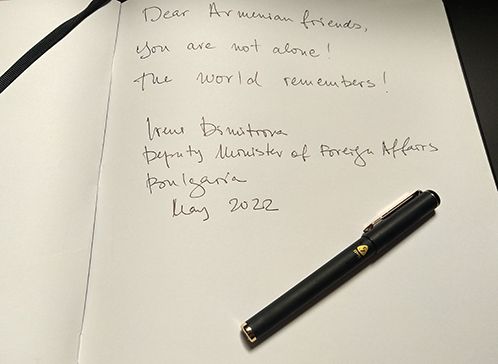 Dear Armenian friends,
you are not alone!
The world remembers!
Irena Dimitrova
Deputy Minister of Foreign Affairs
Bulgaria
May 2022